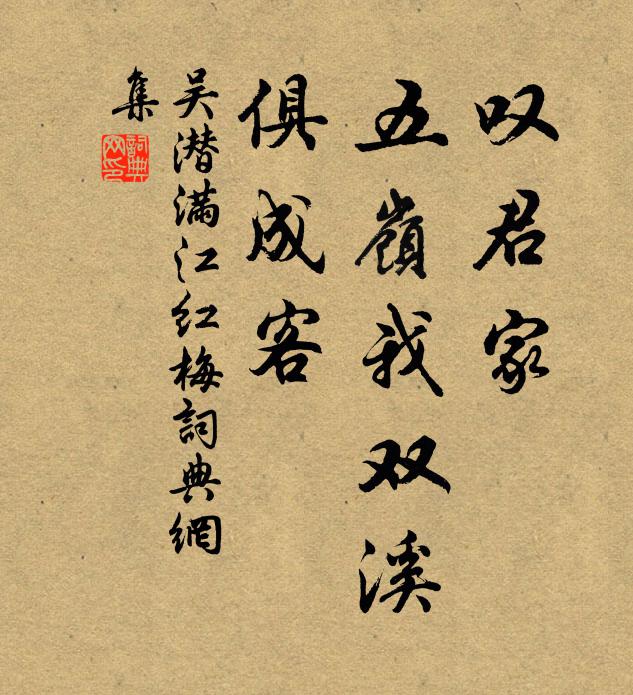 叹君家
五嶺我双溪
俱成客
吴潜满江红梅詞典網
集
詞典
网印